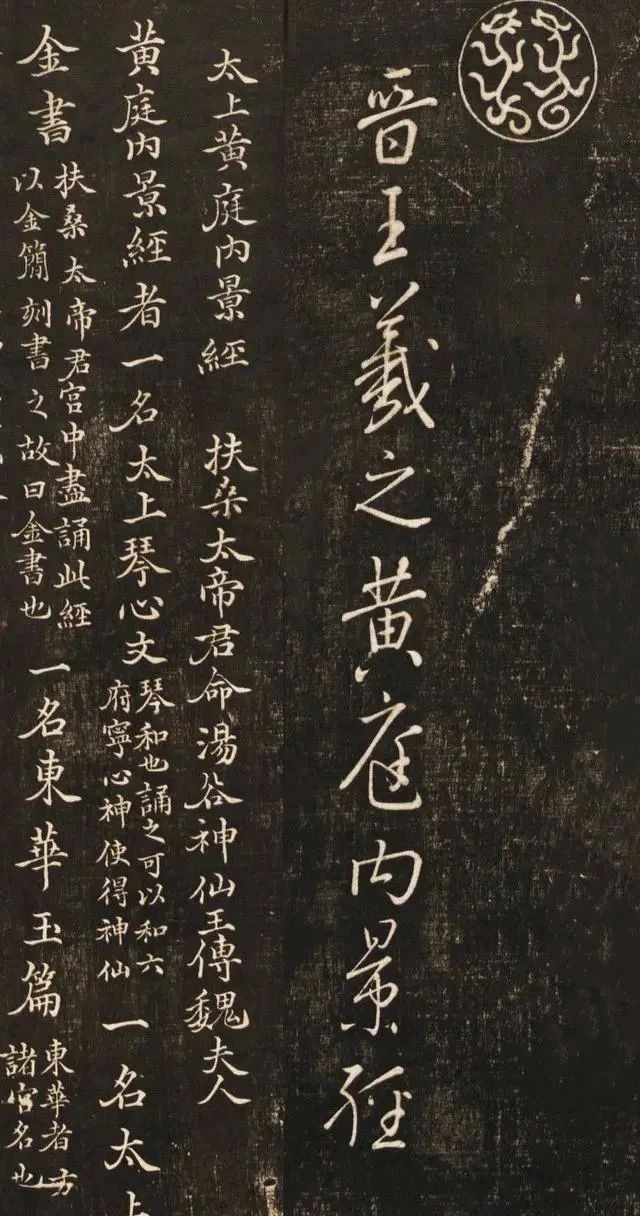 晋王羲之黄庭内景経
太上黄庭内景經 扶桒太帝君命湯谷神仙王傳魏夫人
黄庭内景經者一名太上琴心文 琴和也誦之可以和六
府寧心神使得神仙 一名太上
金書 扶桑太帝君宫中盡誦此經
以金簡刻書之故曰金書也 一名東華玉篇 東華者方
諸宫名也